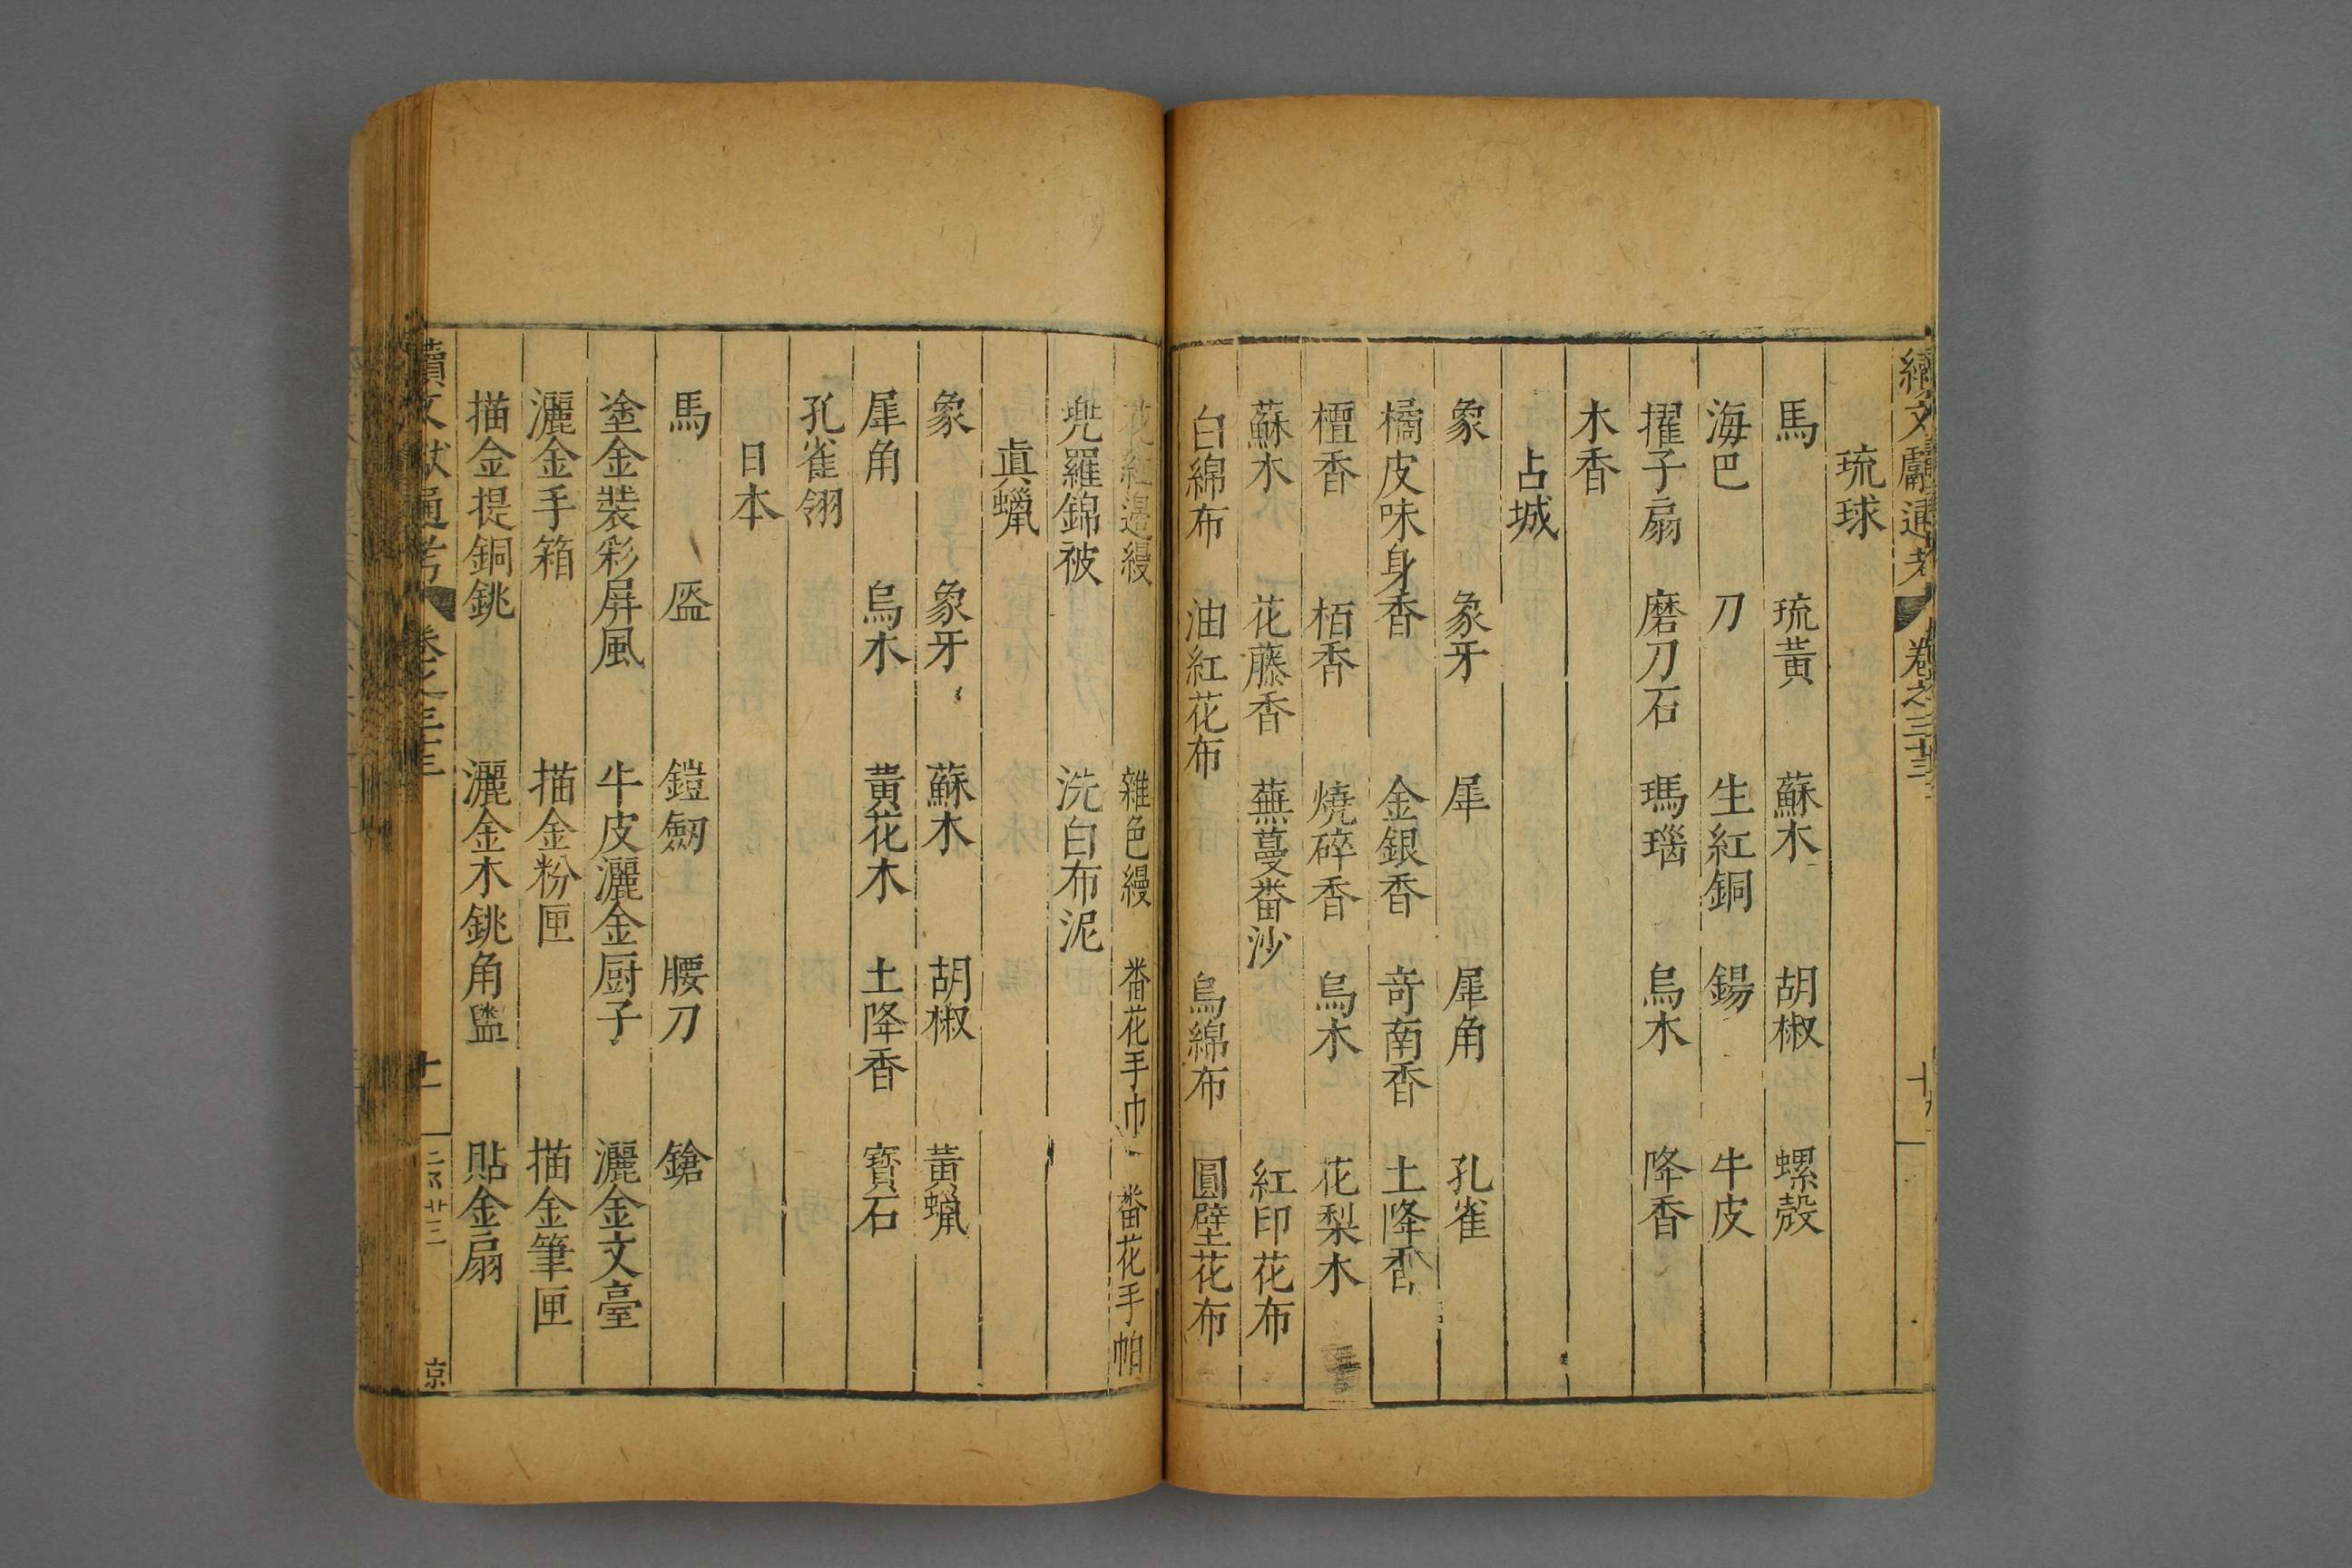 續文獻通考 卷之三十三
琉球
馬 琉黃 蘇木 胡椒 螺殼
海巴 刀 生紅銅 錫 牛皮
擢子扇 磨刀石 瑪瑙 烏木 降香
木香
占城
象 象牙 犀 犀角 孔雀
橘皮味身香 金銀香 奇南香 土降香
檀香 栢香 燒碎香 烏木 花梨木
蘇木 花藤香 蕪蔓番沙 紅印花布
白綿布 油紅花布 烏綿布 圓壁花布
花紅邉縵 雜色縵 番花手巾 番花手帕
兠羅錦被 洗白布泥
眞蠟
象 象牙 蘇木 胡椒 黃蠟
犀角 烏木 黃花木 土降香 寳石
孔雀翎
日本
馬 盔 鎧 劔 腰刀 鎗
塗金裝彩屏風 牛皮灑金厨子 灑金文臺
灑金手箱 描金粉匣 描金筆匣
描金提銅銚 灑金木銚角盥 貼金扇
續文獻通考 卷之三十三 十一 京